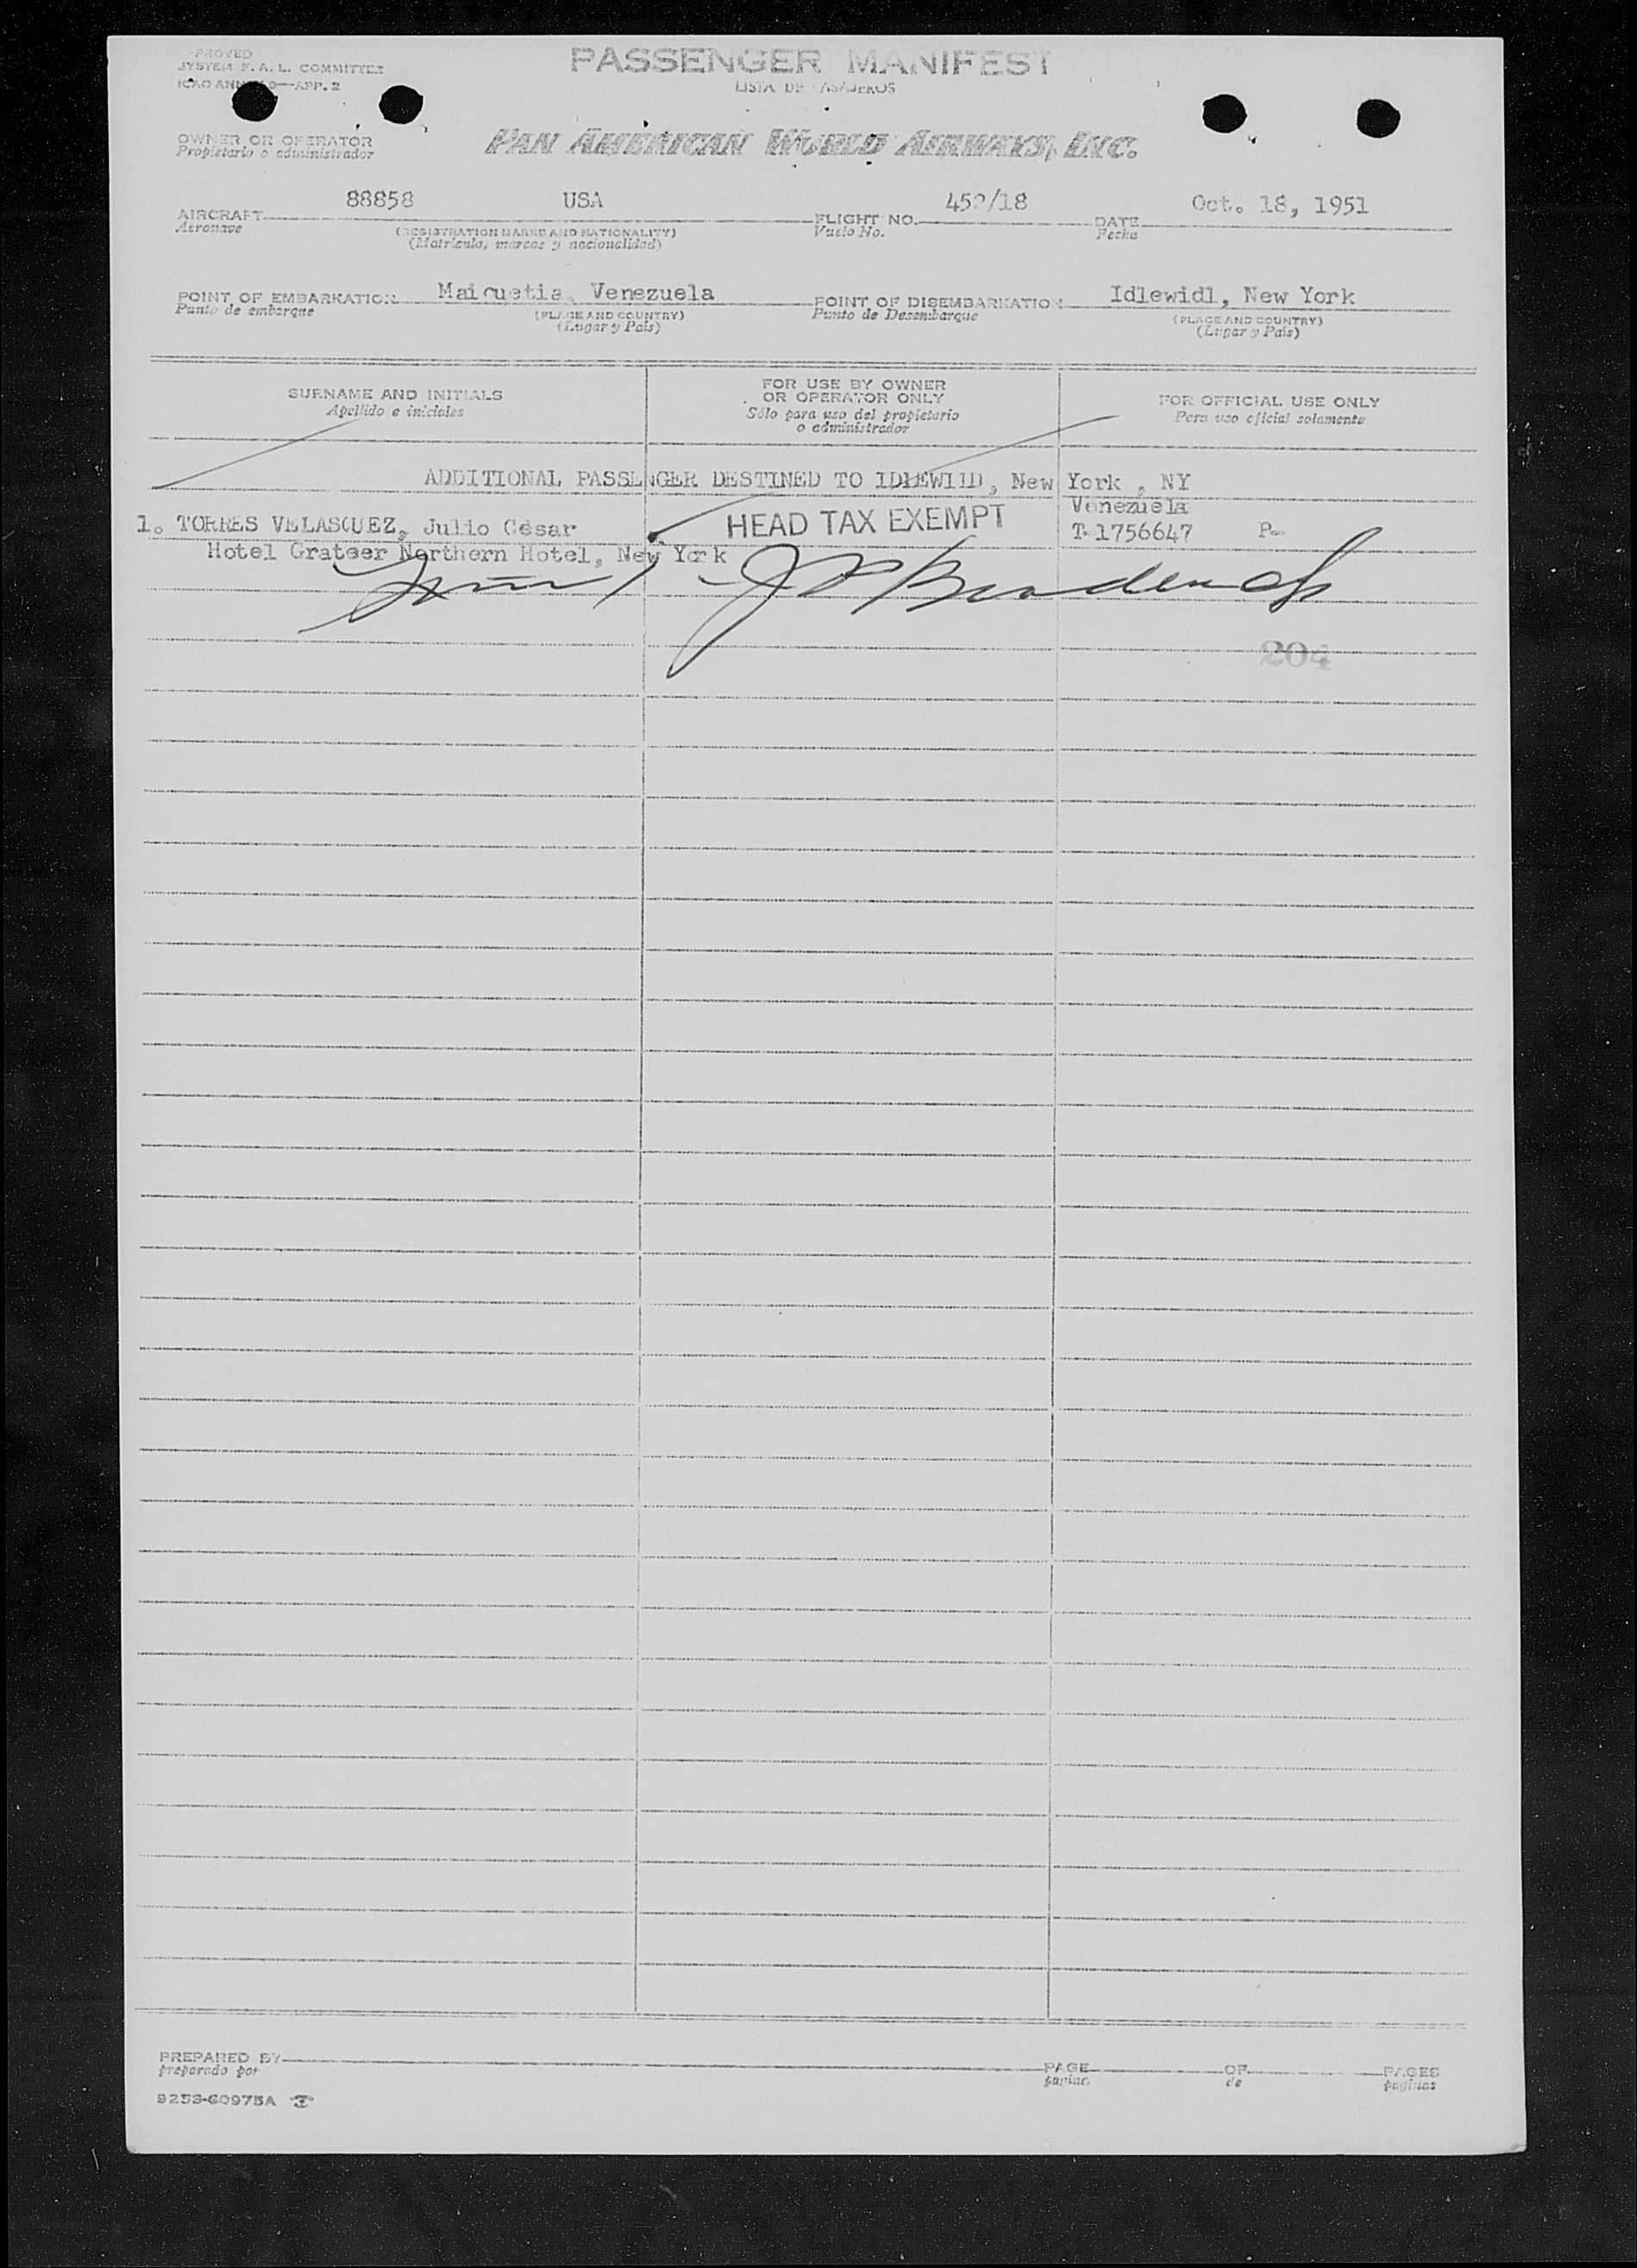 PROVED
SYSTEM F. A. L. COMMITTEE
ICAO ANN 9—APP. 2
PASSENGER MANIFEST
LISTA DE PASAJEROS
OWNER OR OPERATOR
Propietario o administrador
PAN AMERICAN WORLD AIRWAYS, INC.
AIRCRAFT 88858 USA FLIGHT NO. /18 DATE Oct. 18, 1951
Aeronave (REGISTRATION MARKS AND NATIONALITY) Vuelo No. Fecha
(Matricula, marcas y nacionalidad)
POINT OF EMBARKATION Maiquetia, Venezuela POINT OF DISEMBARKATION Idlewidl, New York
Punto de embarque (PLACE AND COUNTRY) Punto de Desembarque (PLACE AND COUNTRY)
(Lugar y País) (Lugar y País)
SURNAME AND INITIALS
Apellido e iniciales
FOR USE BY OWNER
OR OPERATOR ONLY
Sólo para uso del propietario
o administrador
FOR OFFICIAL USE ONLY
Para uso oficial solamente
ADDITIONAL PASSENGER DESTINED TO IDLEWILD, New York , NY
Venezuela
1. TORRES VELASQUEZ, Julio César HEAD TAX EXEMPT T-1756647 P-
Hotel Grateer Northern Hotel, New York
204
PREPARED BY PAGE OF PAGES
preparado por pagina de paginas
9253-60975A